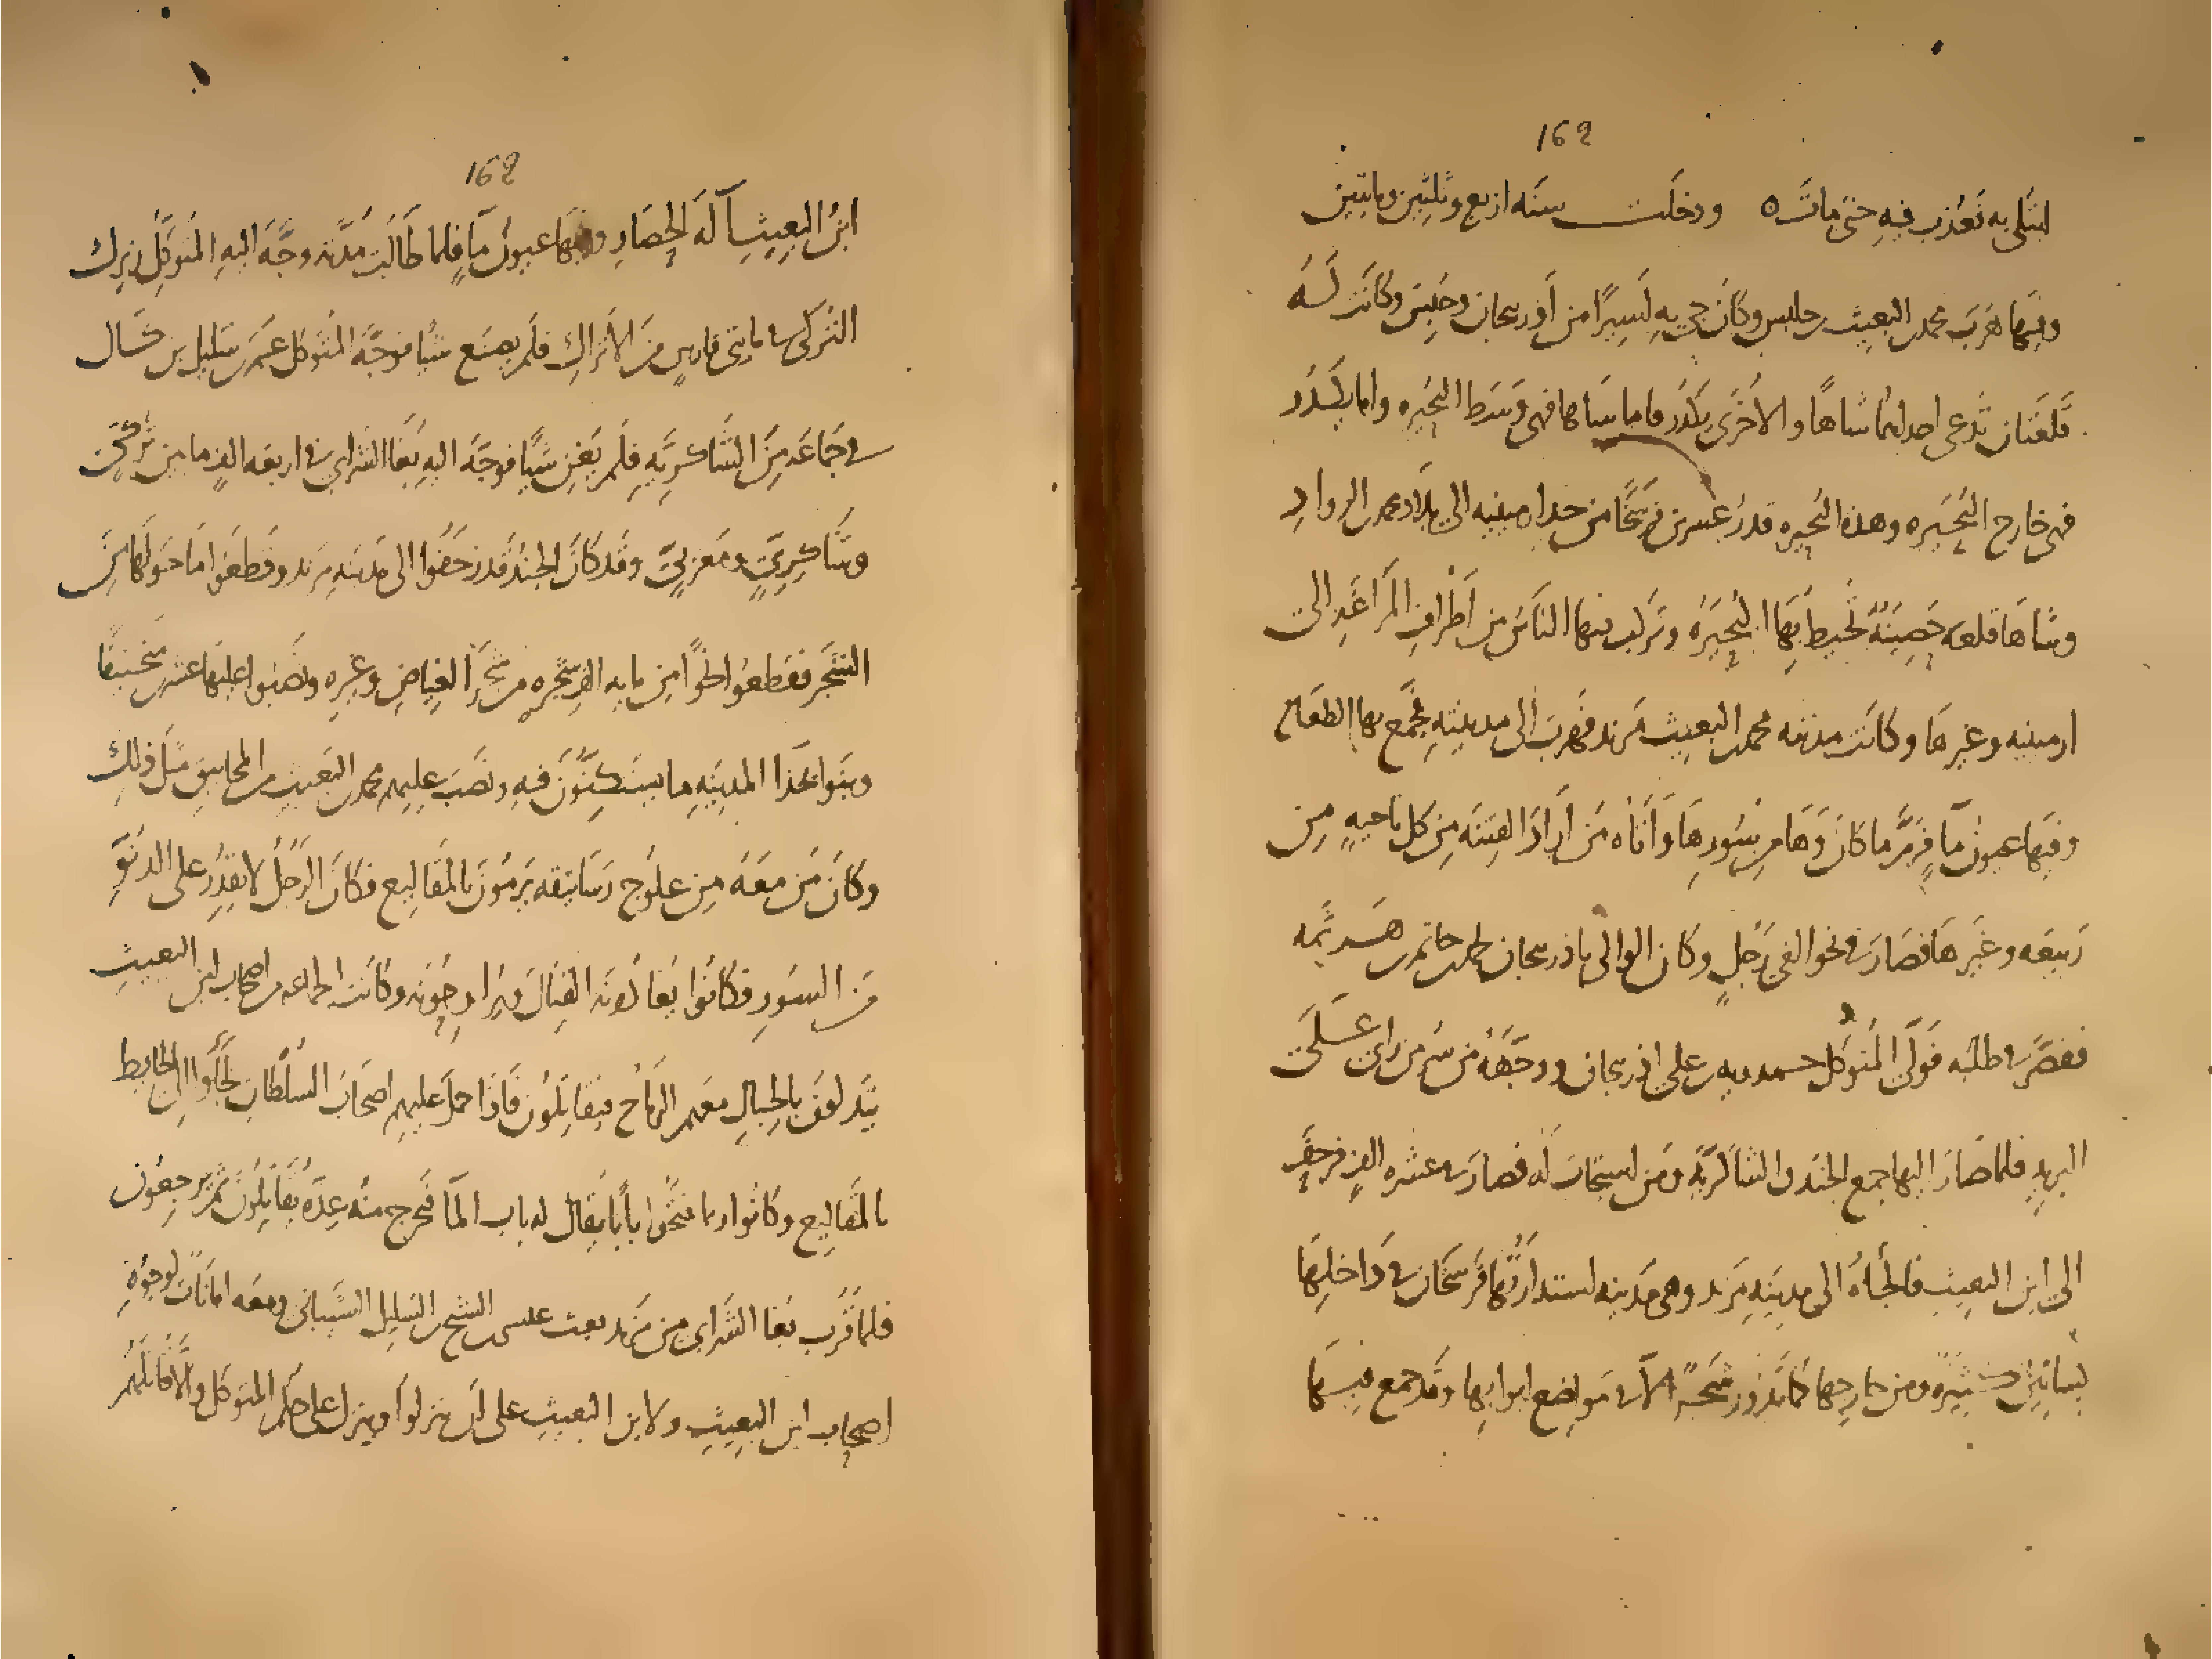 162
ابتلى به فعذب فيه حتى مات ه ودخلت سنه اربع وثلثين ومايتين
وفيها هرب محمد بن البعيث بن حلبس وكان جى به اسيرا من اذربيجان وحبس وكانت له
قلعتان تدعى احداهما شاها والاخرى يكدر فاما شاها فهى وسط البحيره واما يكدر
فهى خارج البحيره وهذه البحيره قدر عشرين فرسخا من حد ارمينيه الى بلاد محمد بن الرواد
وشاها قلعه حصينة تحيط بها البحيرة وتركب فيها الناس من اطراف المراغه الى
ارمينيه وغيرها وكانت مدينه محمد بن البعيث مرند فهرب الى مدينته فجمع بها الطعام
وفيها عيون ماء فرم ما كان وها من سورها واتاه من اراد الفتنه من كل ناحيه من
ربيعه وغيرها فصار فى نحو الفى رجل وكان الوالى باذربيجان محمد بن حاتم بن هرثمه
فقصر فى طلبه فولى المتوكل حمدويه بن على اذربيجان ووجهه من سر من راى على
البريد فلما صار اليها جمع الجند والشاكريه ومن استجاب له فصار فى عشره الف فزحف
الى ابن البعيث فالجاه الى مدينه مرند وهى مدينه استدارتها فرسخان فى داخلها
بساتين كثيره ومن خارجها كما تدور شجر الا فى مواضع ابوابها وقد جمع فيها
162
ابن البعيث آلة الحصار وفيها عيون ماء فلما طالت مدته وجه اليه المتوكل زيرك
التركى فى مايتى فارس من الاتراك فلم يصنع شيا فوجه المتوكل عمر بن سليل بن كال
فى جماعه من الشاكريه فلم يغن شيا فوجه اليه بغا الشرابى فى اربعه الف ما بين تركى
وشاكرى ومغربى وقد كان الجند قد زحفوا الى مدينه مرند وقطعوا ما حولها من
الشجر فقطعوا نحوا من مايه الف شجره من شجر الغياض وغيره ونصبوا عليها عشرين منجنيقا
وبنوا بحذا المدينه ما يستكنون فيه ونصب عليهم محمد بن البعيث من المجانيق مثل ذلك
وكان من معه من علوج رساتيقه يرمون بالمقاليع فكان الرجل لا يقدر على الدنو
من السور فكانوا يغادونه القتال ويراوحونه وكانت الجماعه من اصحاب ابن البعيث
يتدلون بالحبال معهم الرماح فيقاتلون فاذا حمل عليهم اصحاب السلطان لجاوا الى الحايط
بالمقاليع وكانوا ربما فتحوا بابا يقال له باب الما فيخرج منه عده يقاتلون ثم يرجعون
فلما قرب بغا الشرابى من مرند بعث عيسى بن الشيخ بن السليل الشيبانى ومعه امانات لوجوه
اصحاب ابن البعيث ولابن البعيث على ان ينزلوا وينزل على حكم المتوكل والا قاتلهم